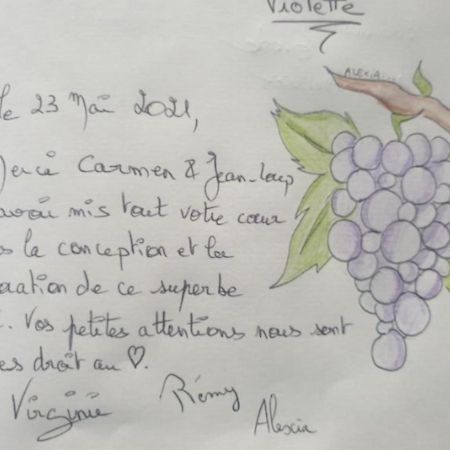 Violette
ALEXIA
le 23 Mai 2021,
Merci Carmen & Jean-Loup
avoir mis tout votre cœur
la conception et la
de ce superbe
Vos petites attentions nous sont
droit au ♡.
Virginie Rémy
Alexia